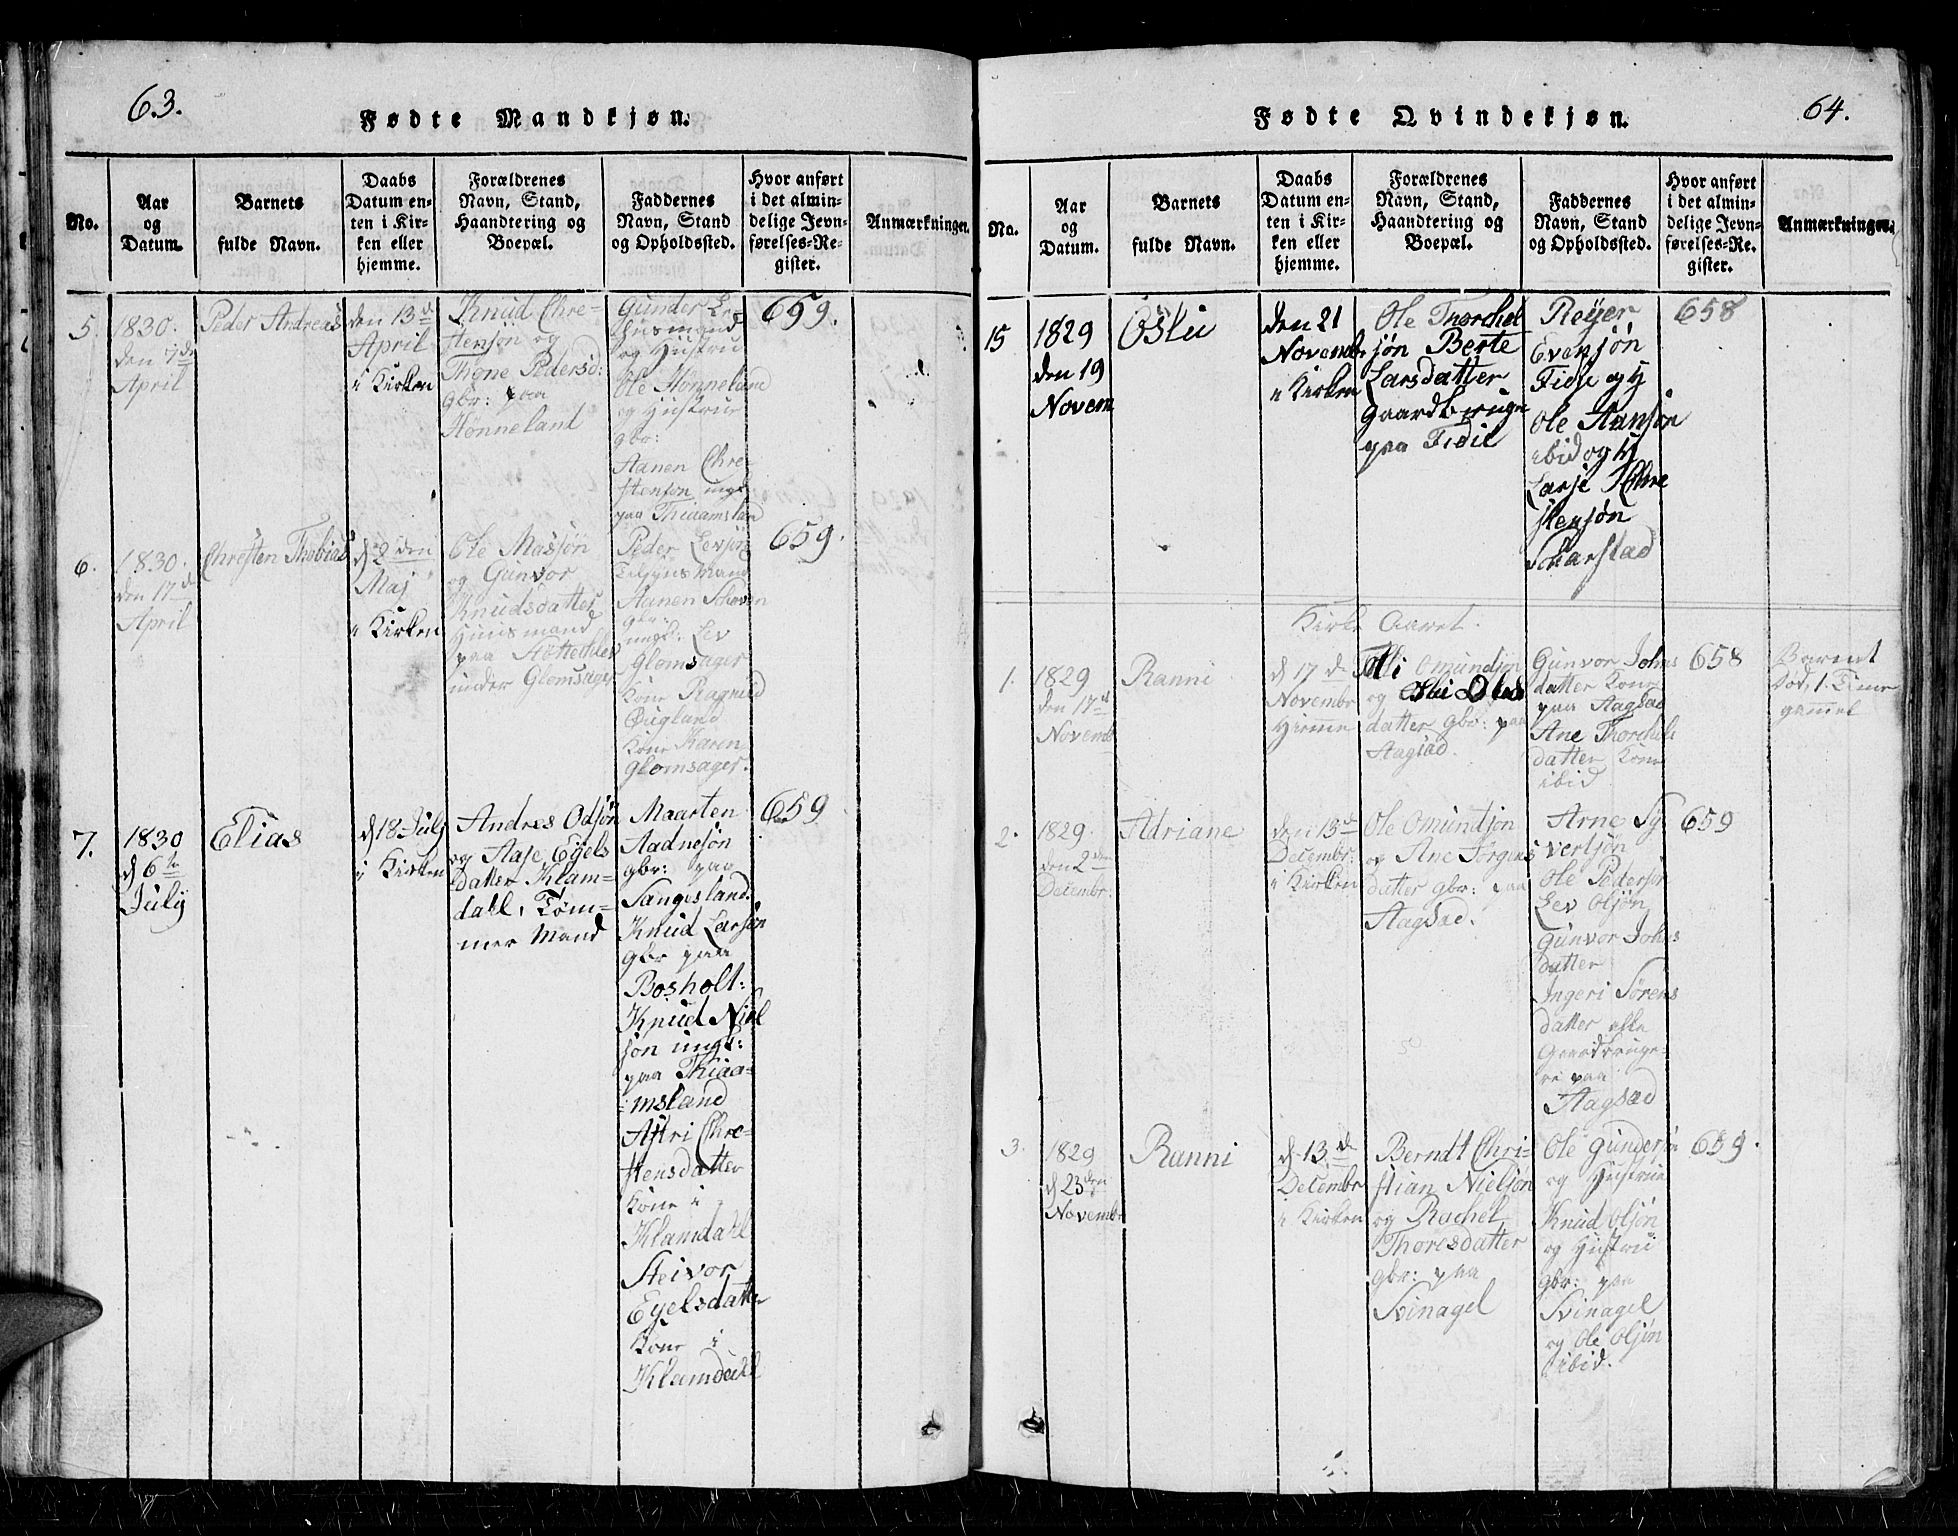 63.
Fødte Mandkjøn.
No.
Aar
og
Datum.
Barnets
fulde Navn.
Daabs
Datum en-
ten i Kir-
ken eller
hjemme.
Forældrenes
Navn, Stand,
Haandtering og
Boepæl.
Faddernes
Navn, Stand
og Opholdssted.
Hvor anført
i det almin-
delige Jevn-
førelses-Re-
gister.
Anmærkninger.
5.
1830.
den 7de
April
Peder Andreas
den 13d
April
i Kirken
Knud Chre-
stensøn og
Thone Pedersd:
gbr: paa
Hønneland
Gunder
Huusmand
og Hustru
Ole Hønneland
og Hustrue
gbr:
Aanen Chre-
stensøn ungk
paa Thiaamsland
659.
6.
1830.
den 17d
April
Chresten Thobias
d 2den
Maj
i Kirken
Ole Massøn
og Gunvor
Knudsdatter
Huusmand
paa
under Glomsager
Peder Levsøn
Tilsyns Mand
Aanen
gbr:
ungk: Lev
Glomsager
Kone Ragnild
Øugland
Kone Karen
Glomsager.
659.
7.
1830
d 6te
July
Elias
d 18 July
i Kirken
Andres Odsøn
og Aase Eyels
datter Klam-
dahl, Tøm-
mer Mand
Maarten
Aadnesøn
gbr: paa
Sangesland.
Knud Larsøn
gbr paa
Bosholt:
Knud Niel
søn ungk:
paa Thiaa-
msland
Astri Chre-
stensdatter
Kone i
Klamdahl
Steivor
Eyelsdatter
Kone i
Klamdahl
659
64.
Fødte Qvindekjøn.
No.
Aar
og
Datum.
Barnets
fulde Navn.
Daabs
Datum en-
ten i Kir-
ken eller
hjemme.
Forældrenes
Navn, Stand,
Haandtering og
Boepæl.
Faddernes
Navn, Stand
og Opholdssted.
Hvor anført
i det almin-
delige Jevn-
førelses-Re-
gister.
Anmærkninger.
15
1829
den 19
Novem
Oslu
den 21
Novembr
i Kirken
Ole Thorchel
søn Berte
Larsdatter
Gaardbruge
paa Fidie
Reyer
Evensøn
Fidje og H
Ole Aansøn
ibid og H
Larse Chre
stensøn
Scharstad
658
Kirke Aaret.
1.
1829
den 17d
Novembr
Ranni
d 17 de
Novembr
Hiemme
Tolli Omundsøn
og Oslu Oles
datter gbr: paa
Aagsad.
Gunvor Johns
datter Kone
paa Aagsad
Ane Thorchels
datter Kone
ibid
658
Barnet
død, 1. Time
gammel
2.
1829.
den 2den
Decembr:
Adriane
den 13de
Decembr:
i Kirken
Ole Omundsøn
og Ane Jørgens
datter gbr: paa
Aagsad.
Arne Sy
vertsøn
Ole Pedersøn
Lev Olsøn
Gunvor Johns
datter
Ingeri Sørens
datter alle
Gaardbruge-
re paa
Aagsad
659
3.
1829
d 23den
Novembr
Ranni
d 13de
Decembr
i Kirken
Berndt Chri-
stian Nielsøn
og Rachel
Thoresdatter
gbr: paa
Svinagel
Ole Gundersøn
og Hustrue
Knud Olsøn
og Hustru
gbr: paa
Svinagel
og Ole Olsøn
ibid.
659.